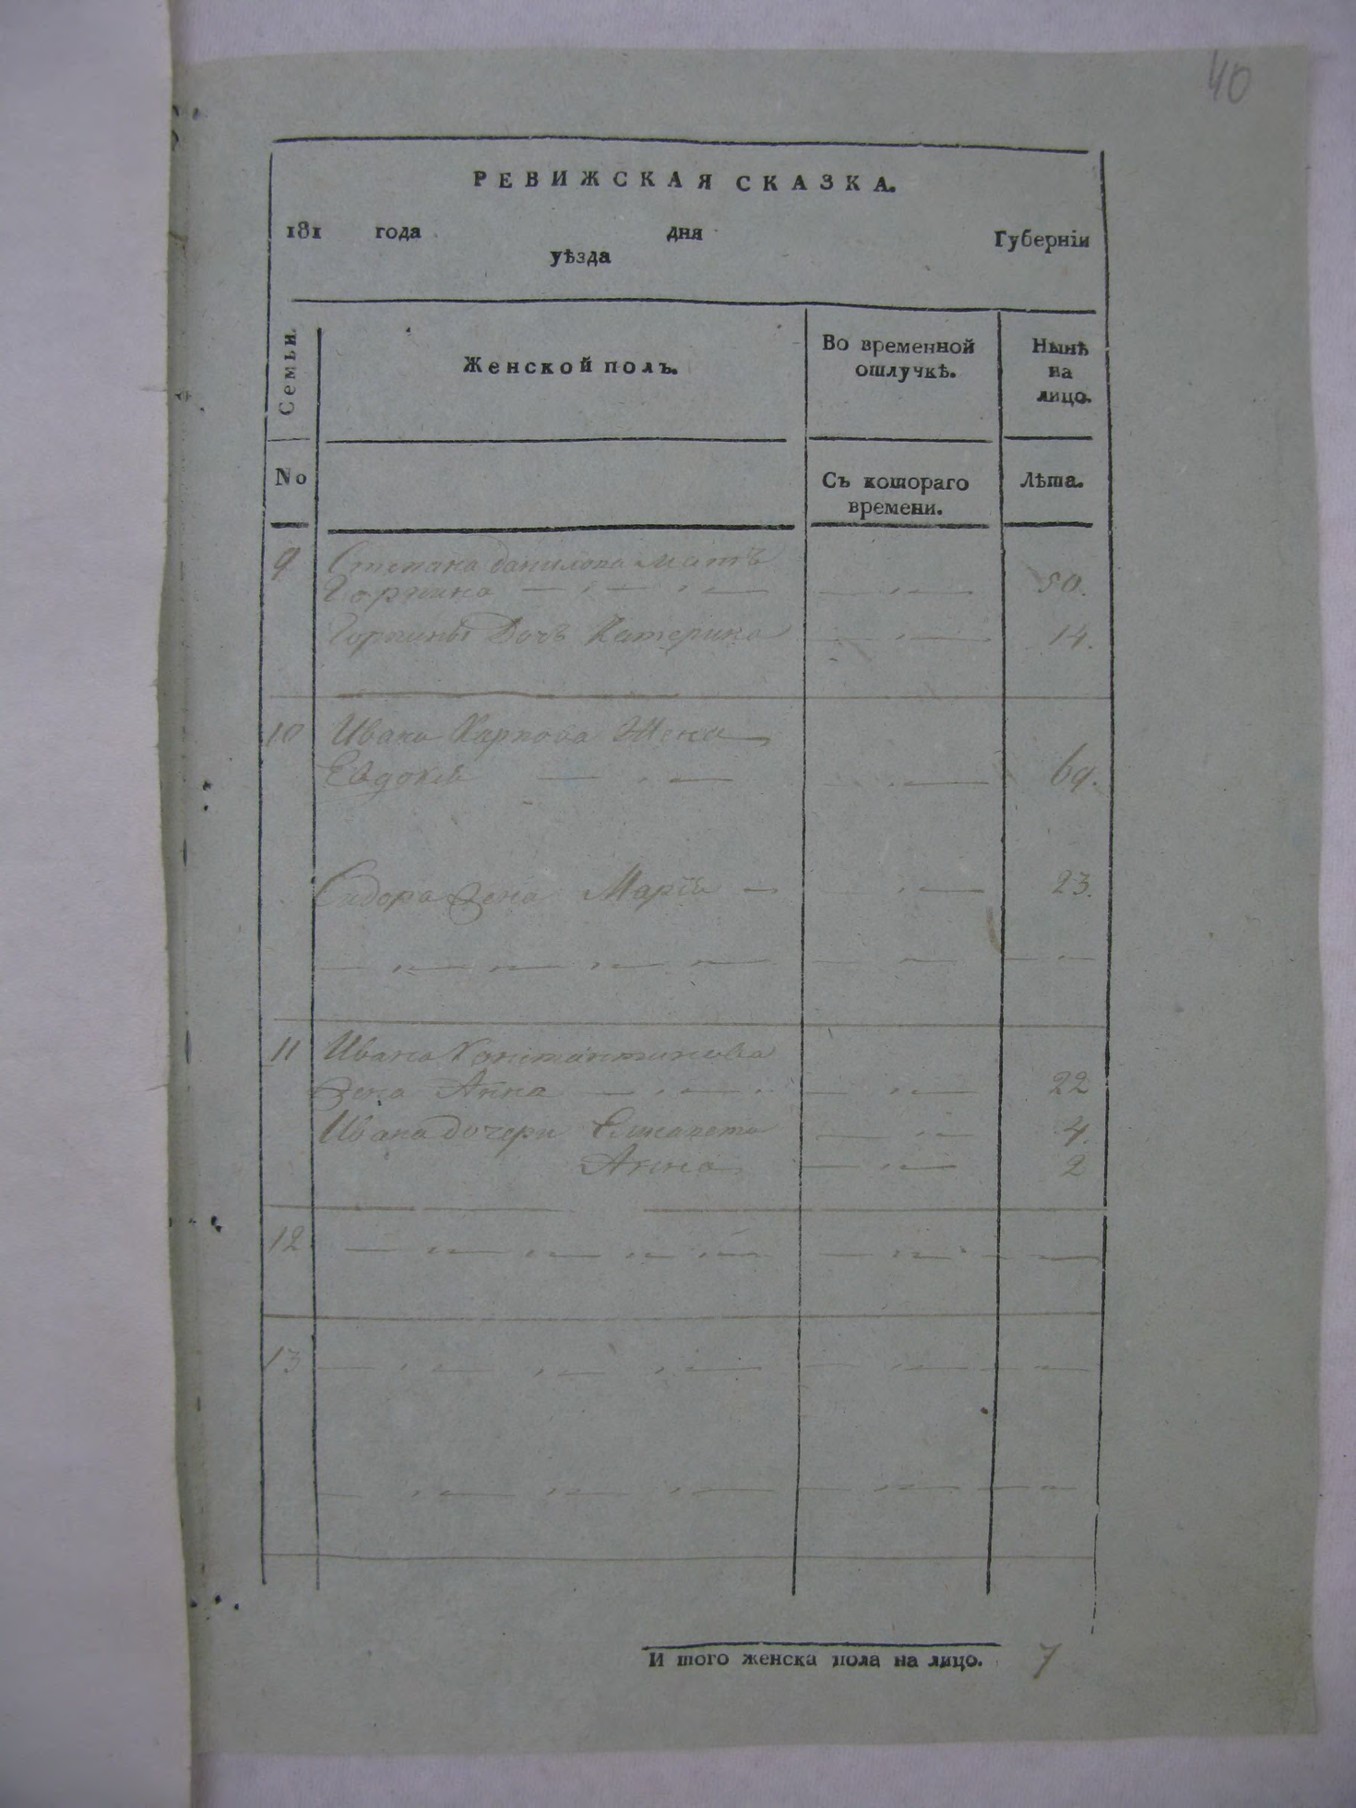 40
РЕВИЖСКАЯ СКАЗКА.
181 года дня Губерніи
уѣзда
Семьи.
Женской полъ.
Во временной отлучкѣ.
Нынѣ на лицо.
No
Съ котораго времени.
Лѣта.
9 Степана Данилова мать
Горпина 50.
Горпины Дочь Катерина 14.
10 Ивана Карпова Жена
Евдокія 69.
Сидора жена Марія 23.
11 Ивана Константинова
жена Анна 22
Ивана дочери Елисавета 4.
Анна 2
12
13
И того женска пола на лицо. 7